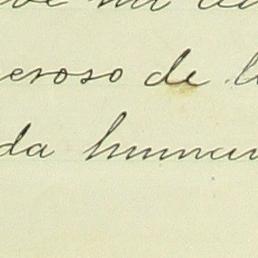 mi
eroso de l
da human